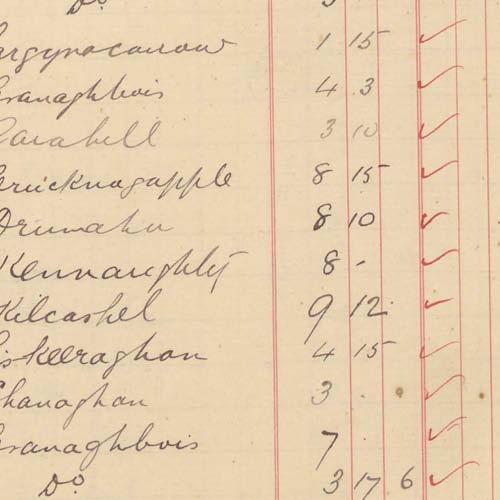 Do
argynacarrow 1 15
Granaghbois 4 3
Carabell 3 10
Cruicknagapple 8 15
Drumahu 8 10
Kennaughty 8 -
Kilcashel 9 12
iskeeraghan 4 15
Shanaghan 3 .
Granaghbois 7 .
Do 3 17 6